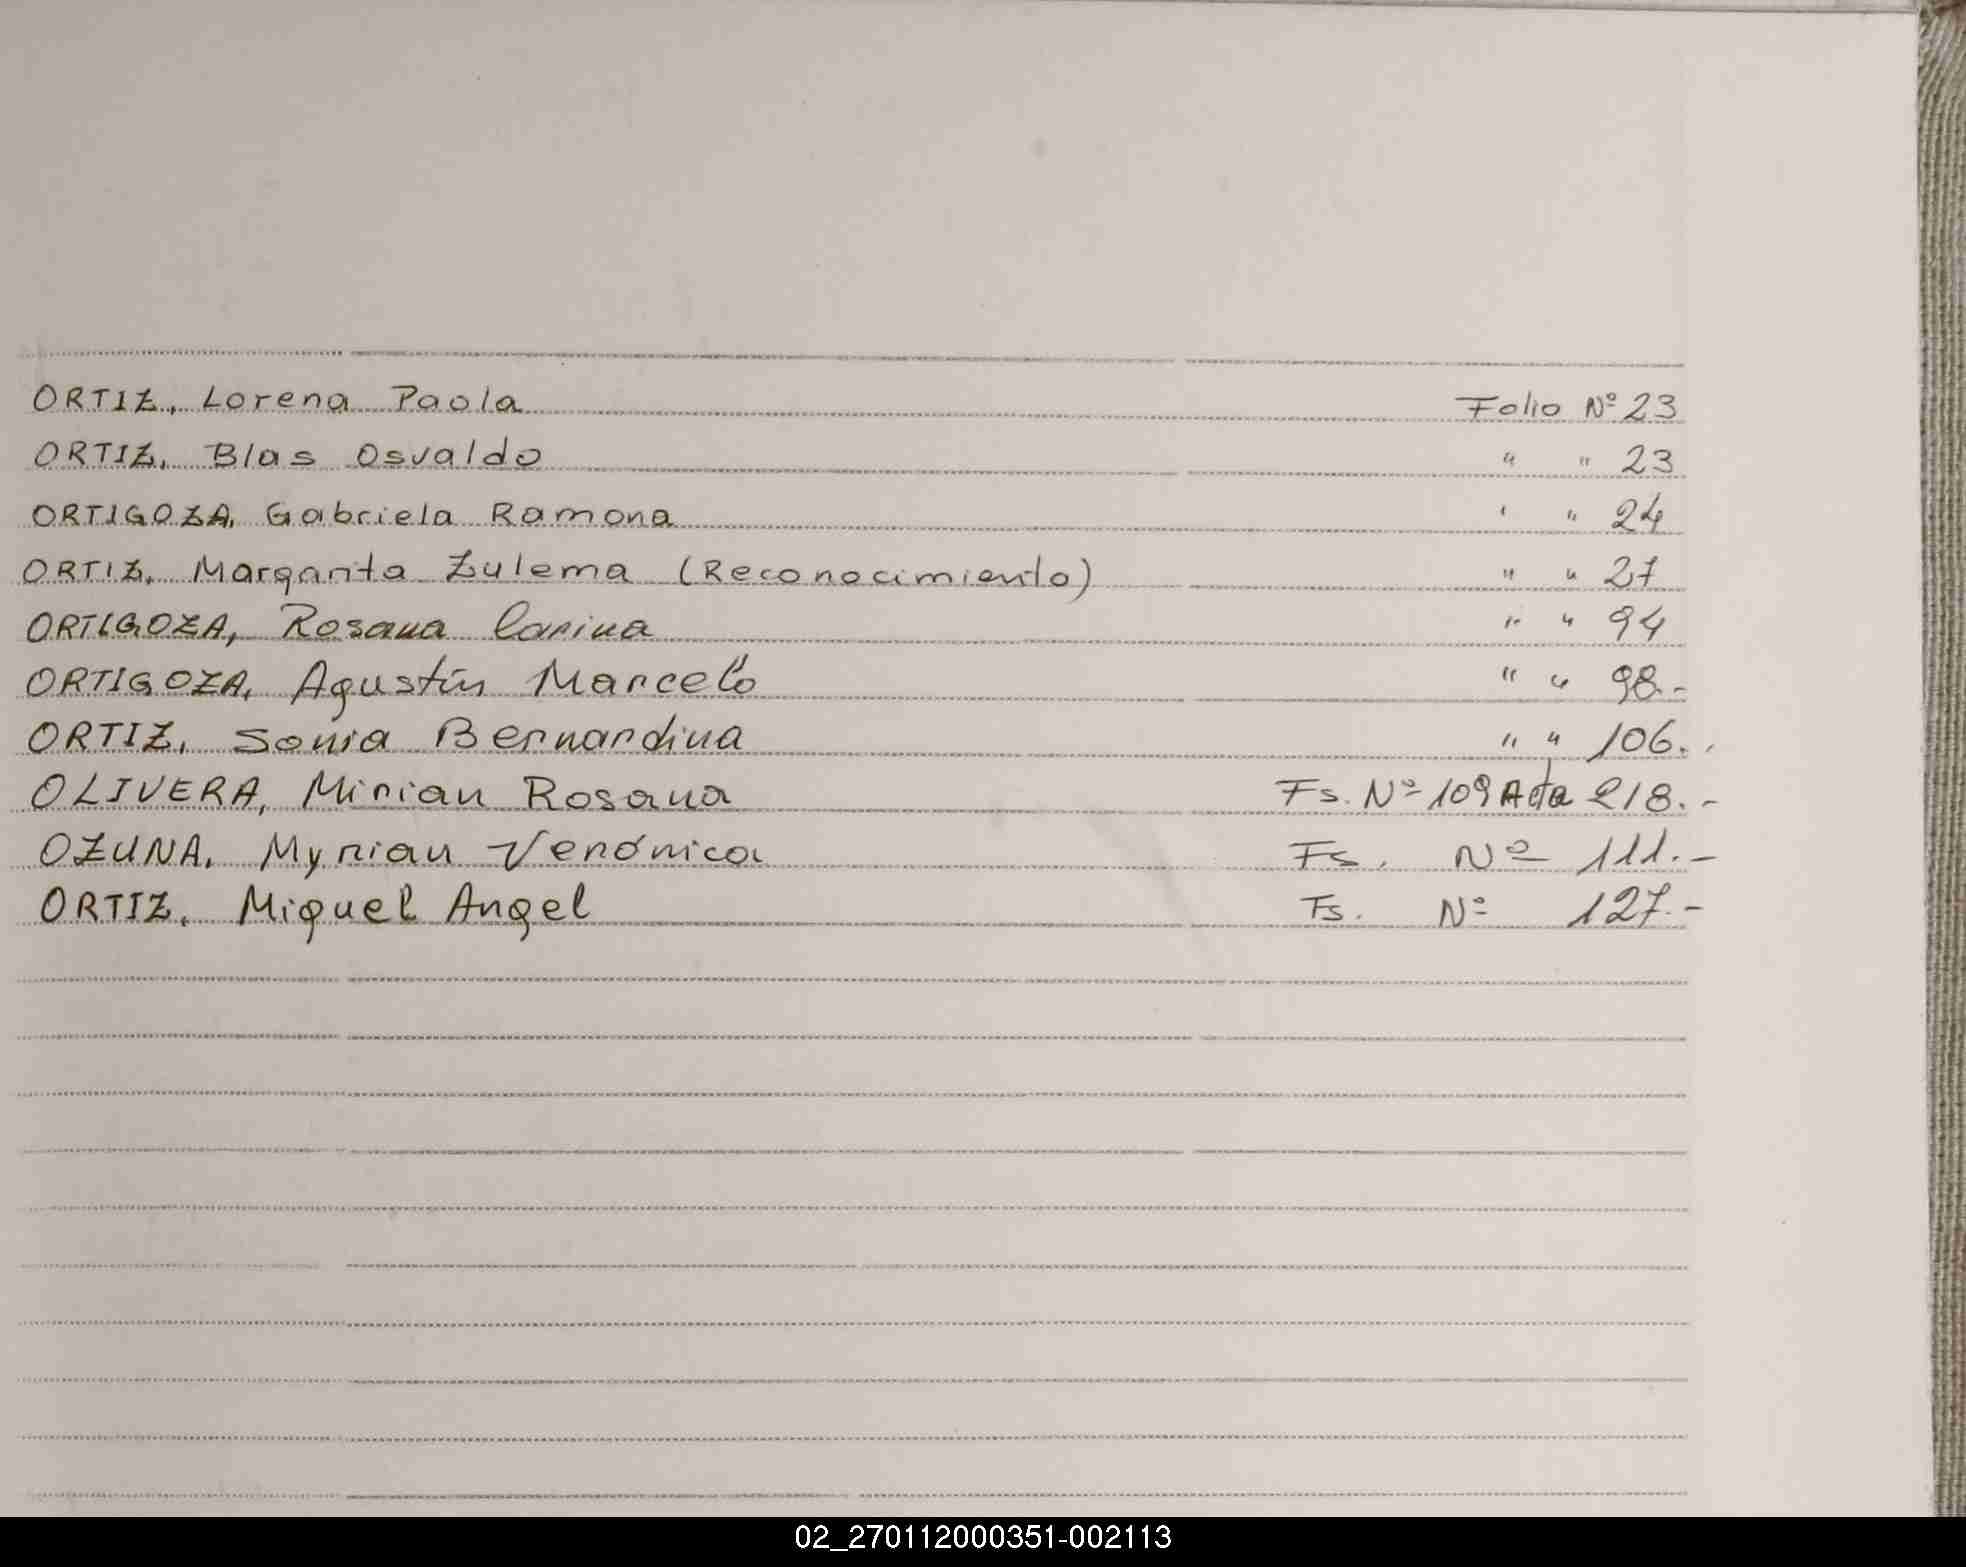 ORTIZ, Lorena Paola Folio Nº 23
ORTIZ, Blas Osvaldo " " 23
ORTIGOZA, Gabriela Ramona " " 24
ORTIZ, Margarita Zulema (Reconocimiento) " " 27
ORTIGOZA, Rosana Carina " " 94
ORTIGOZA, Agustín Marcelo " " 98.-
ORTIZ, Sonia Bernardina " " 106.-
OLIVERA, Mirian Rosana Fs. Nº 109 Acta 218.-
OZUNA, Myrian Verónica Fs. Nº 111.-
ORTIZ, Miguel Angel Fs. Nº 127.-
02_270112000351-002113